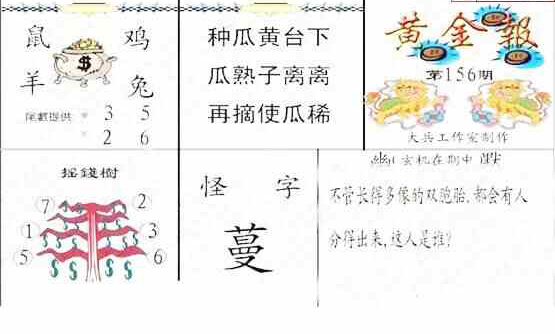 鼠 鸡
$
羊 兔
尾數提供 3 5
2 6
种瓜黄台下
瓜熟子离离
再摘使瓜稀
黄金報
第156期
大兵工作室制作
摇錢樹
7 2
1 3
5 6
$ $ $ $ $ $
怪 字
蔓
玄机在期中
不管长得多像的双胞胎,都会有人
分得出来,这人是谁?